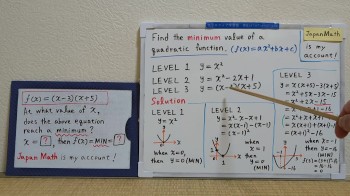 f(x) = (x-3)(x+5)
At what value of x,
does the above equation
reach a minimum?
x = ? then f(x) = ?
MIN
Japan Math is my account!
Find the minimum value of a
quadratic function. (f(x)=ax²+bx+c)
JapanMath
is my
account!
LEVEL 1 y = x²
LEVEL 2 y = x² - 2x + 1
LEVEL 3 y = (x-3)(x+5)
Solution
LEVEL 1
y = x²
when x=0,
then y=0 (MIN)
LEVEL 2
y = x² - 2x + 1
= x(x-1) - (x-1)
= (x-1)²
when x=1
then
y=0 (MIN)
LEVEL 3
y = x(x+5) - 3(x+5)
= x² + 5x - 3x - 15
= x² + 2x - 15
= x² + x + x + 1
= x(x+1) + (x+1)
= (x+1)² - 16
when x=-1